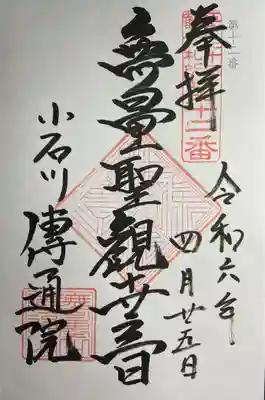 第十二番
奉拝
十二番
令和六年
四月廿五日
無量聖観世音
小石川
傳通院